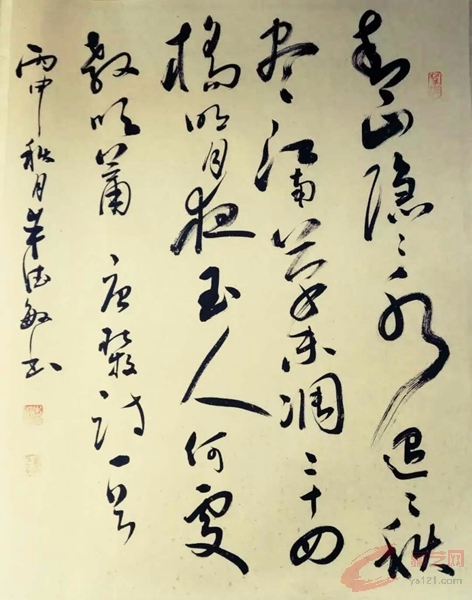 青山隐〻水迢〻秋
尽江南草未凋二十四
橋明月夜玉人何處
教吹箫 唐杜牧诗一首
丙申秋月牟德敏书
ys121.com